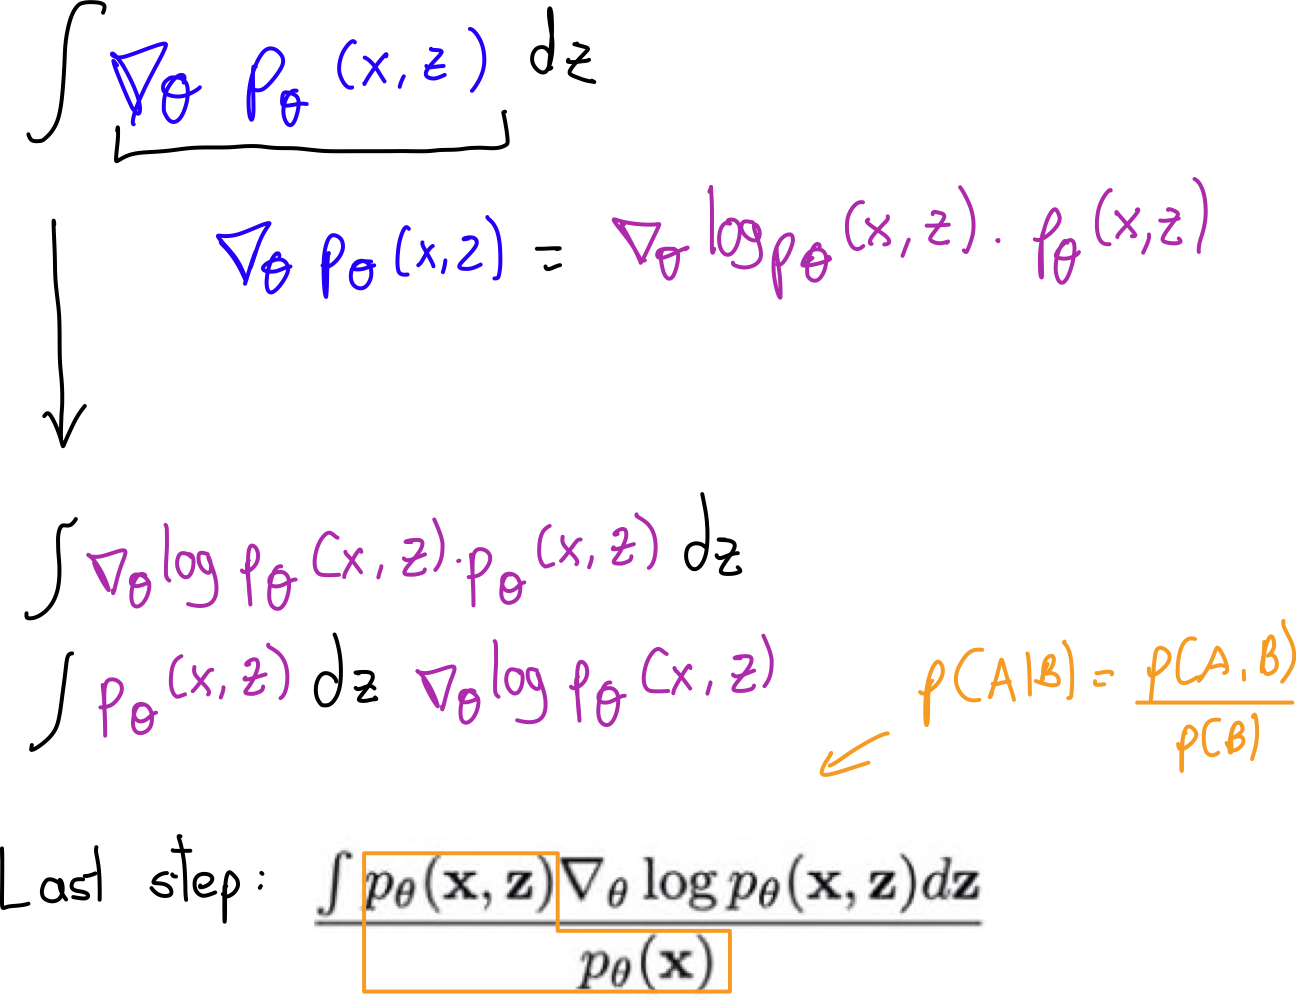 ∫ ∇θ pθ (x, z) dz
∇θ pθ (x, z) = ∇θ log pθ (x, z) · pθ (x, z)
∫ ∇θ log pθ (x, z) · pθ (x, z) dz
∫ pθ (x, z) dz ∇θ log pθ (x, z)
p(A|B) = p(A, B) / p(B)
Last step: ∫ pθ(x, z)∇θ log pθ(x, z)dz / pθ(x)